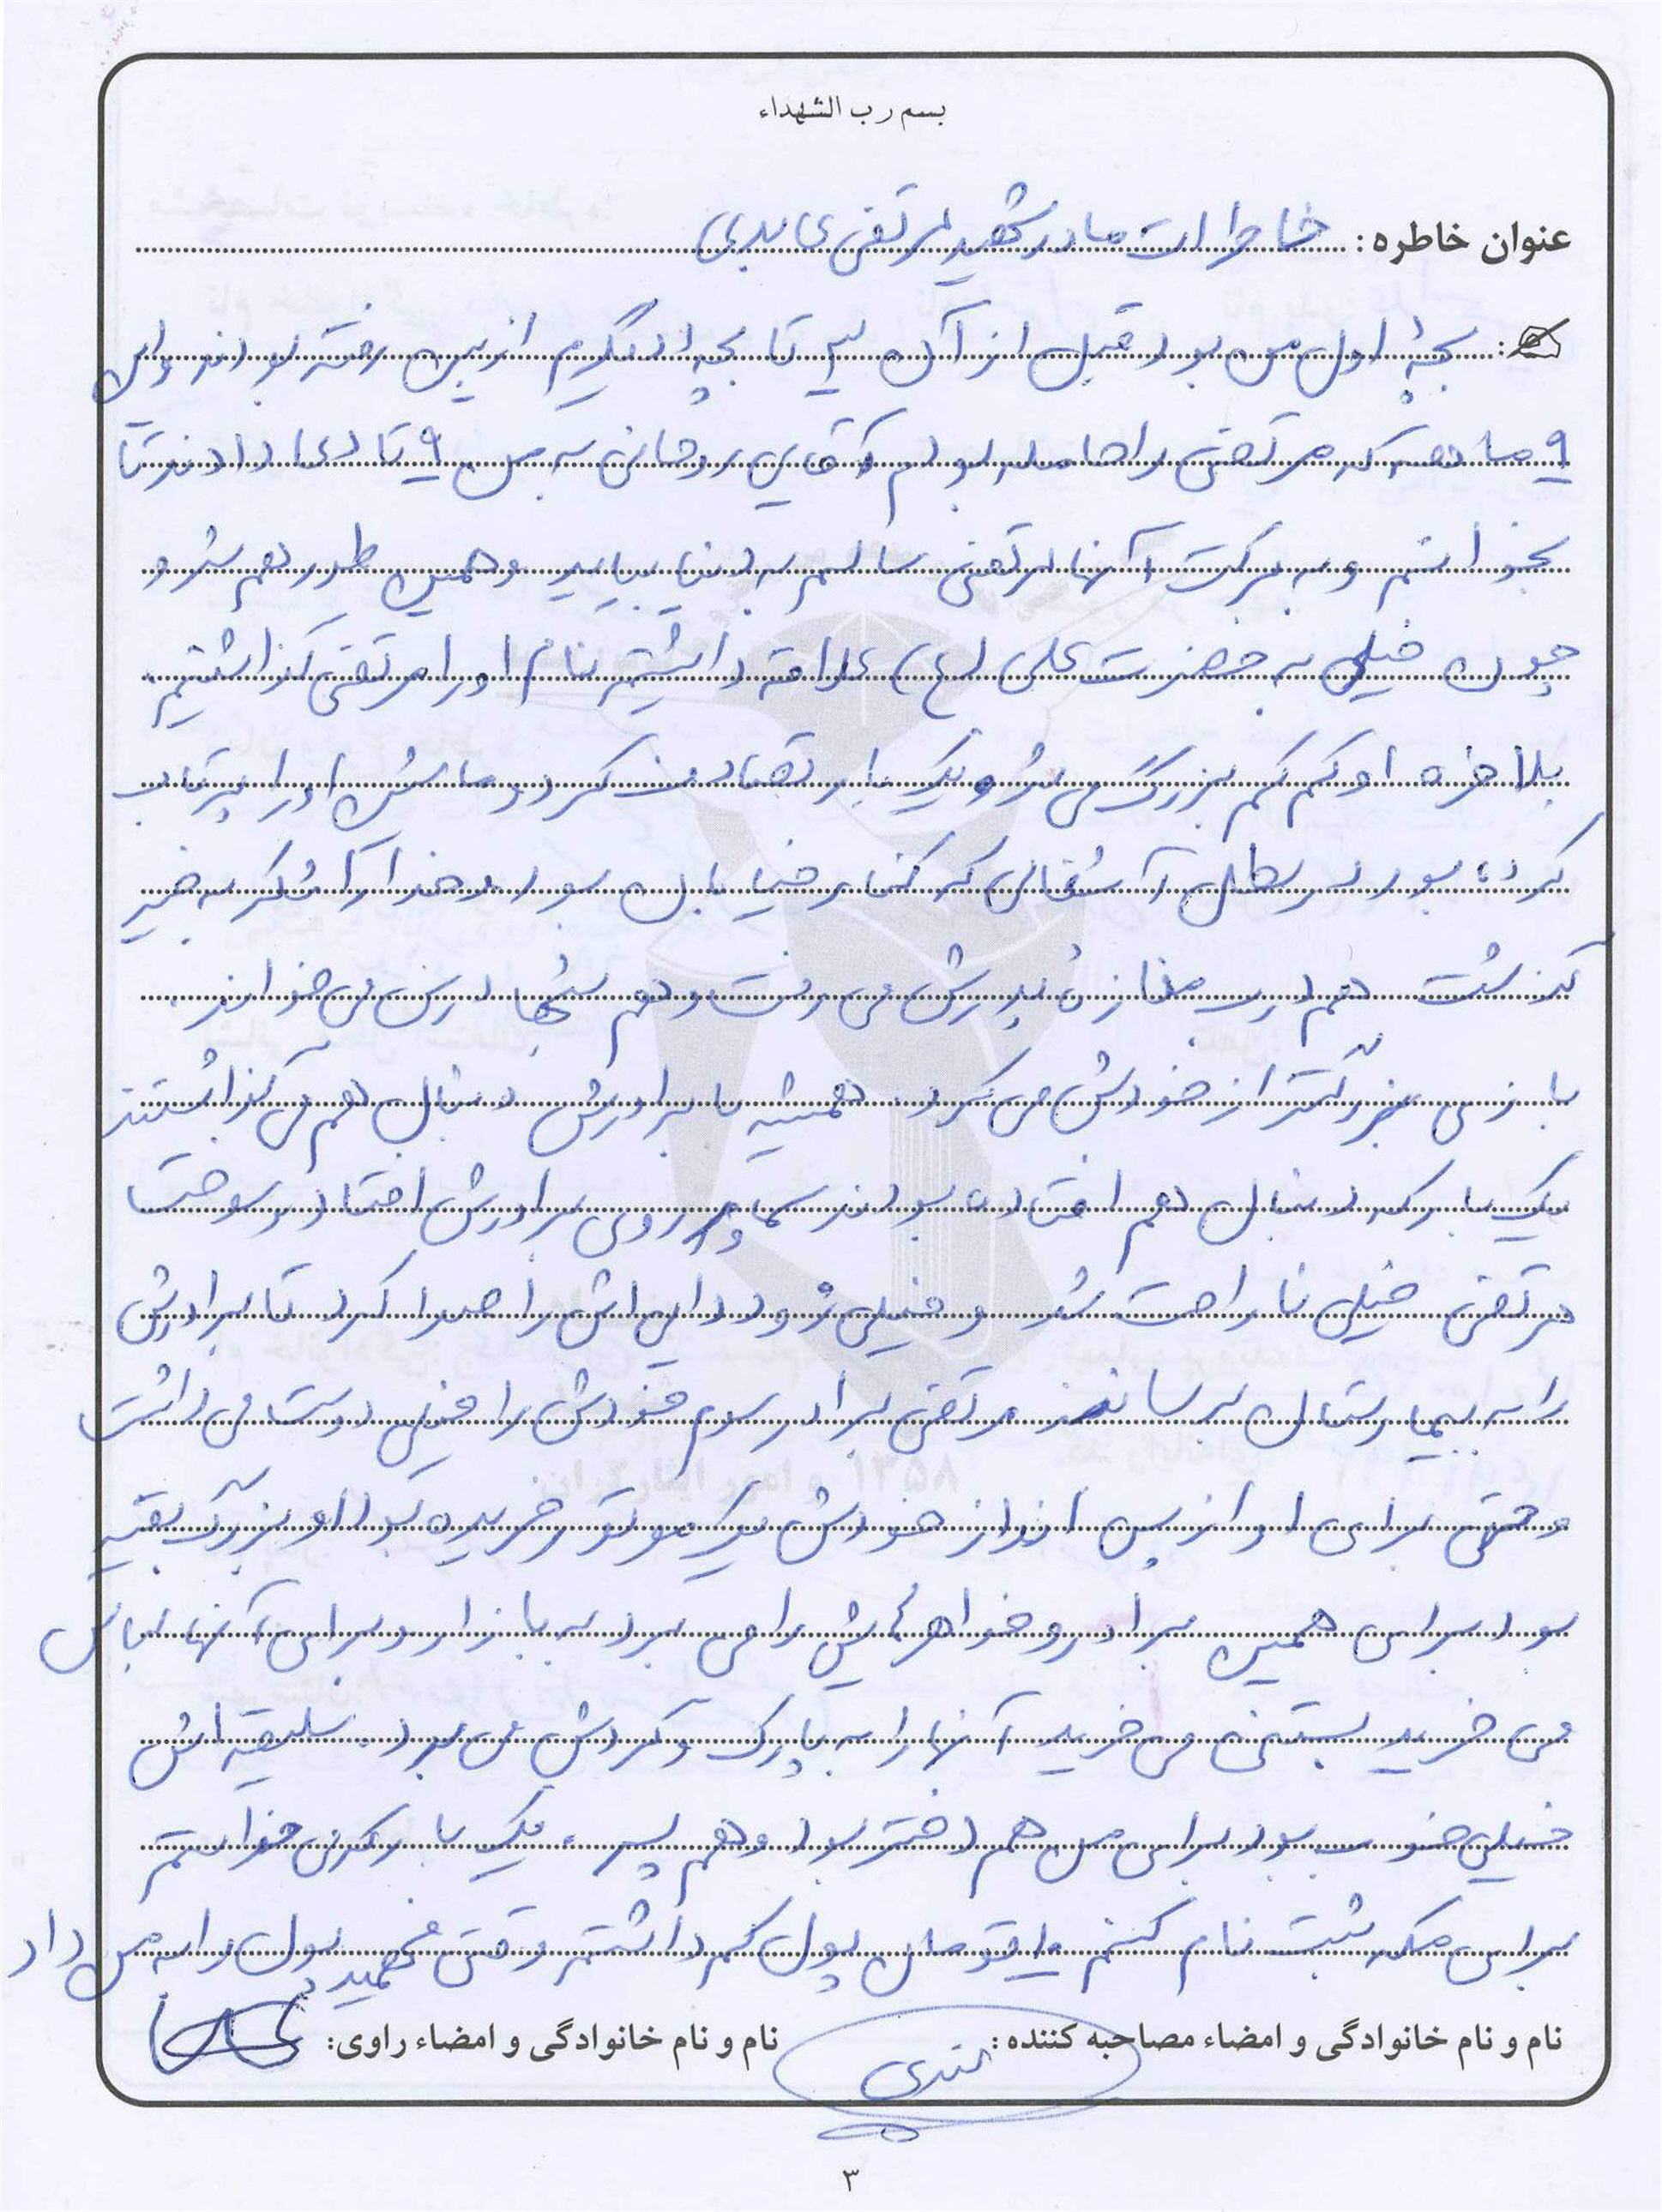 بسم رب الشهداء
عنوان خاطره: خاطرات مادر شهید مرتضی عابدی
بچهٔ اول من بود قبل از آن سه تا بچه دیگرم از بین رفته بودند ولی
۹ ماهه که مرتضی را حامله بودم آقای روحانی به من ۹ تا دعا دادند تا
بخوانم و به برکت آنها مرتضی سالم به دنیا بیاید و همین طور هم شد و
چون خیلی به حضرت علی (ع) علاقه داشتیم نام او را مرتضی گذاشتیم.
بلاخره او کم کم بزرگ می شد و یک بار تصادف کرد و ماشین او را پرتاب
کرده بود در سطل آشغالی که کنار خیابان بود و خدا را شکر به خیر
گذشت هم درب مغازهٔ پدرش می رفت و هم شبها درس می خواند.
بازی بزرگتر از خودش می کرد. همیشه با برادرش دنبال هم می گذاشتند
یک بار که دنبال هم افتاده بودند سماور روی برادرش افتاد و سوخت
مرتضی خیلی ناراحت شد و خیلی زود دایی اش را صدا کرد تا برادرش
را به بیمارستان برسانند. مرتضی برادر سوم خودش را خیلی دوست می داشت
و حتی برای او از پس انداز خودش یک موتور خریده بود او بزرگ بقیه
بود برای همین برادر و خواهرهایش را می برد به بازار و برای آنها لباس
می خرید بستنی می خرید آنها را به پارک و گردش می برد. سلیقه اش
خیلی خوب بود برای من هم دختر بود و هم پسر. یک بار که می خواستم
برای مکه ثبت نام کنم تومان پول کم داشتم وقتی فهمید پول را به من داد
نام و نام خانوادگی و امضاء مصاحبه کننده: نام و نام خانوادگی و امضاء راوی:
۳